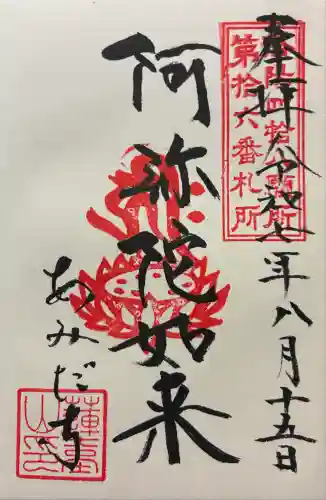 奉拝 令和七年八月十五日
第拾六番札所
阿弥陀如来
あみだ寺